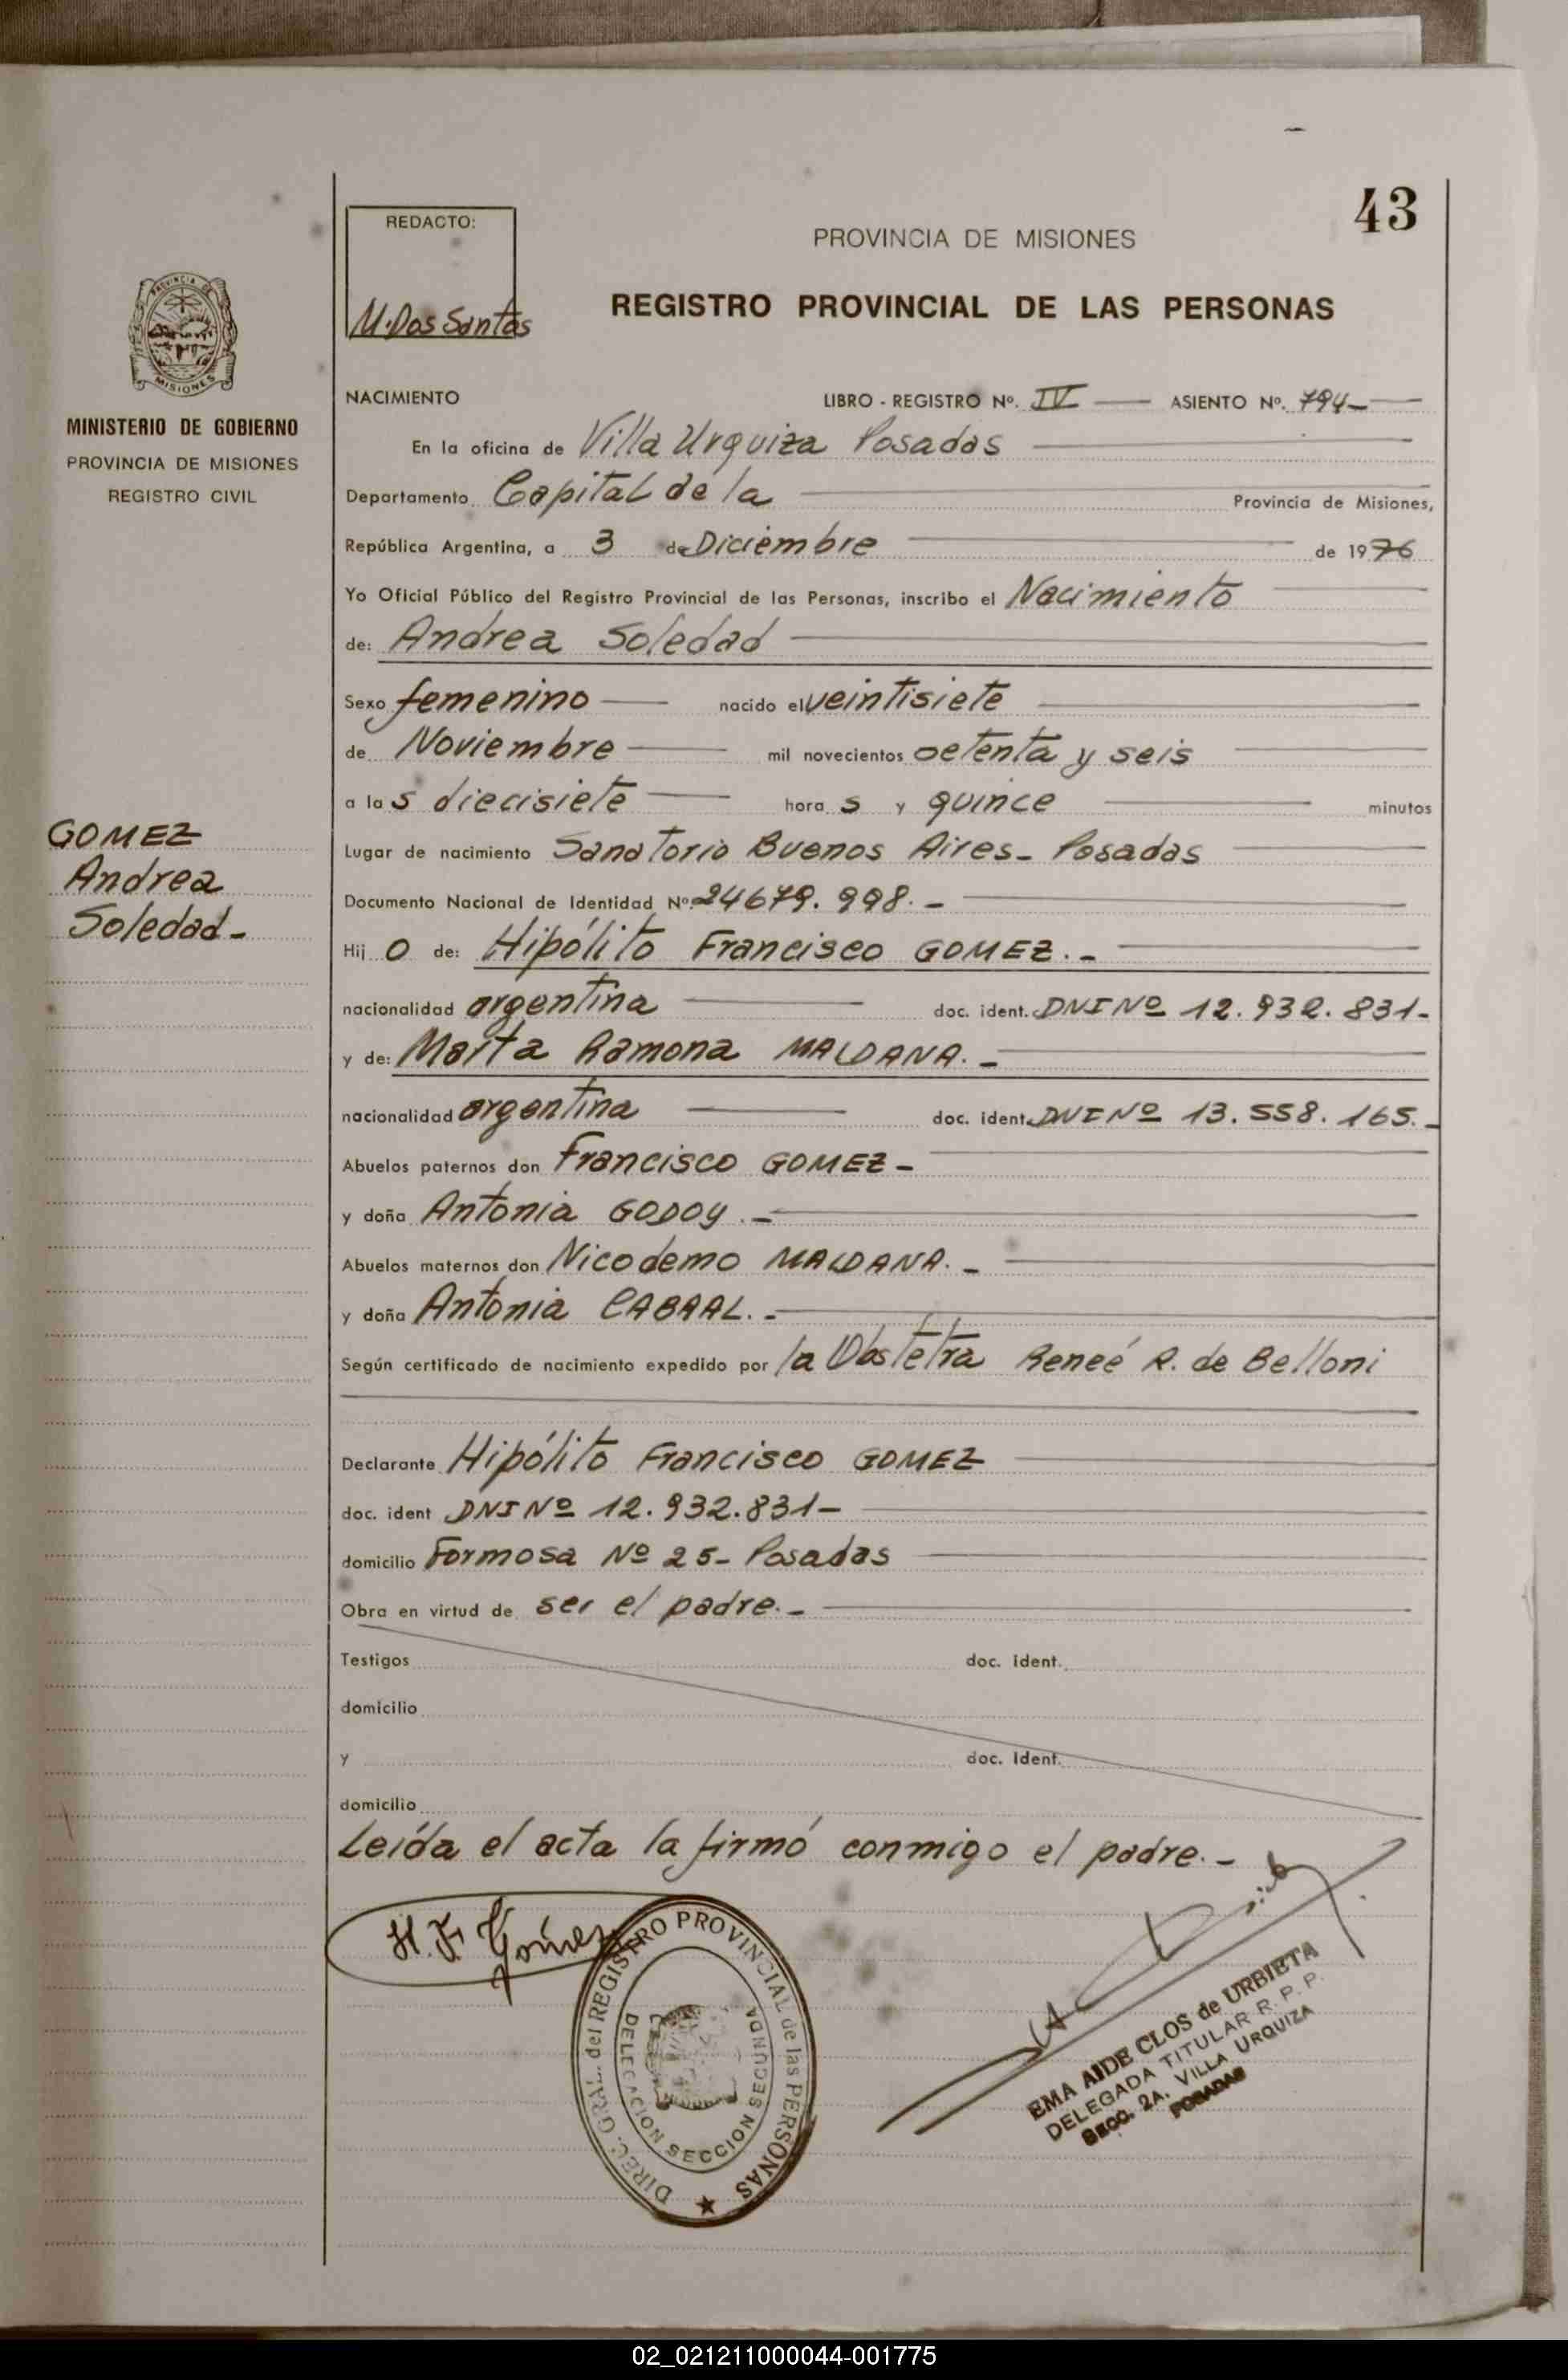 43
REDACTO:
M. Dos Santos
PROVINCIA DE MISIONES
REGISTRO PROVINCIAL DE LAS PERSONAS
PROVINCIA DE
MISIONES
MINISTERIO DE GOBIERNO
PROVINCIA DE MISIONES
REGISTRO CIVIL
NACIMIENTO LIBRO - REGISTRO Nº. IV ASIENTO Nº. 794-
En la oficina de Villa Urquiza Posadas
Departamento Capital de la Provincia de Misiones,
República Argentina, a 3 de Diciembre de 1976
Yo Oficial Público del Registro Provincial de las Personas, inscribo el Nacimiento
de: Andrea Soledad
Sexo femenino nacido el veintisiete
de Noviembre mil novecientos setenta y seis
a las diecisiete horas y quince minutos
GOMEZ
Andrea
Soledad-
Lugar de nacimiento Sanatorio Buenos Aires- Posadas
Documento Nacional de Identidad Nº. 24679.998.-
Hij o de: Hipólito Francisco GOMEZ.-
nacionalidad argentina doc. ident. DNI Nº 12.932.831-
y de: Marta Ramona MALDANA.-
nacionalidad argentina doc. ident. DNI Nº 13.558.165.-
Abuelos paternos don Francisco GOMEZ-
y doña Antonia GODOY.-
Abuelos maternos don Nicodemo MALDANA.-
y doña Antonia CABRAL.-
Según certificado de nacimiento expedido por la Obstetra Reneé R. de Belloni
Declarante Hipólito Francisco GOMEZ
doc. ident DNI Nº 12.932.831-
domicilio Formosa Nº 25- Posadas
Obra en virtud de ser el padre.-
Testigos doc. ident.
domicilio
y doc. Ident.
domicilio
Leída el acta la firmó conmigo el padre.-
H. F. Gómez
DIREC. GRAL. del REGISTRO PROVINCIAL de las PERSONAS
DELEGACION SECCION SEGUNDA
EMA AIDE CLOS de URBIETA
DELEGADA TITULAR R. P. P.
SECC. 2A. VILLA URQUIZA
POSADAS
02_021211000044-001775